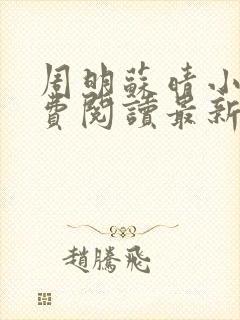 周明蘇晴小
費閱讀最新
趙騰飛